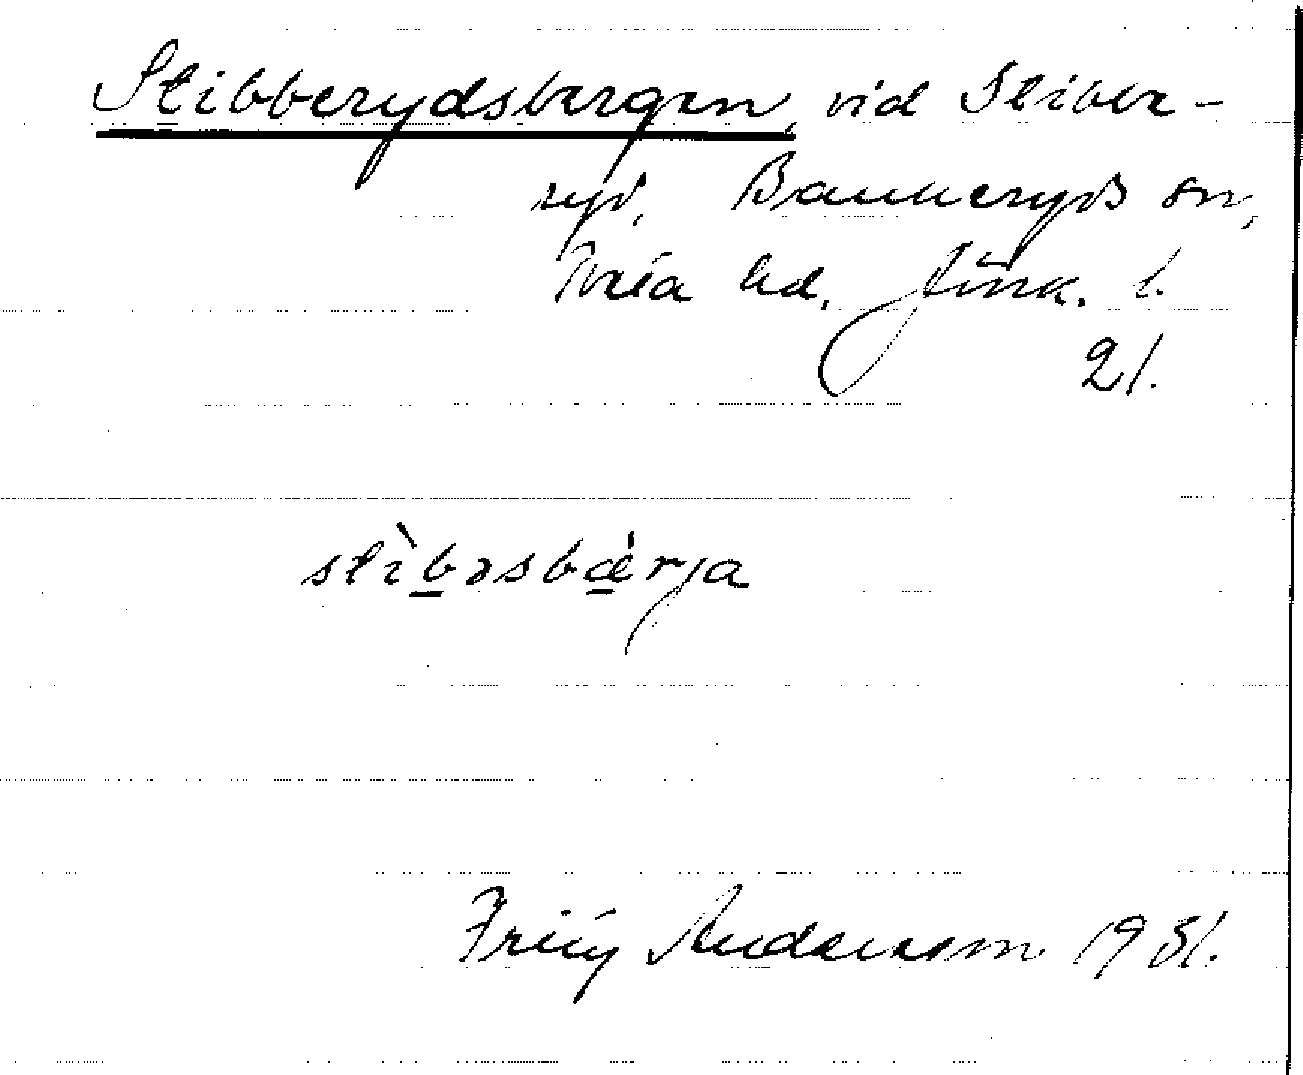 Stibberydsbergen, vid Stibbe-
ryd, Bankeryds sn,
Tveta hd, Jönk. l.
21.
stìbəsbæ̀rja
Andersson 1931.